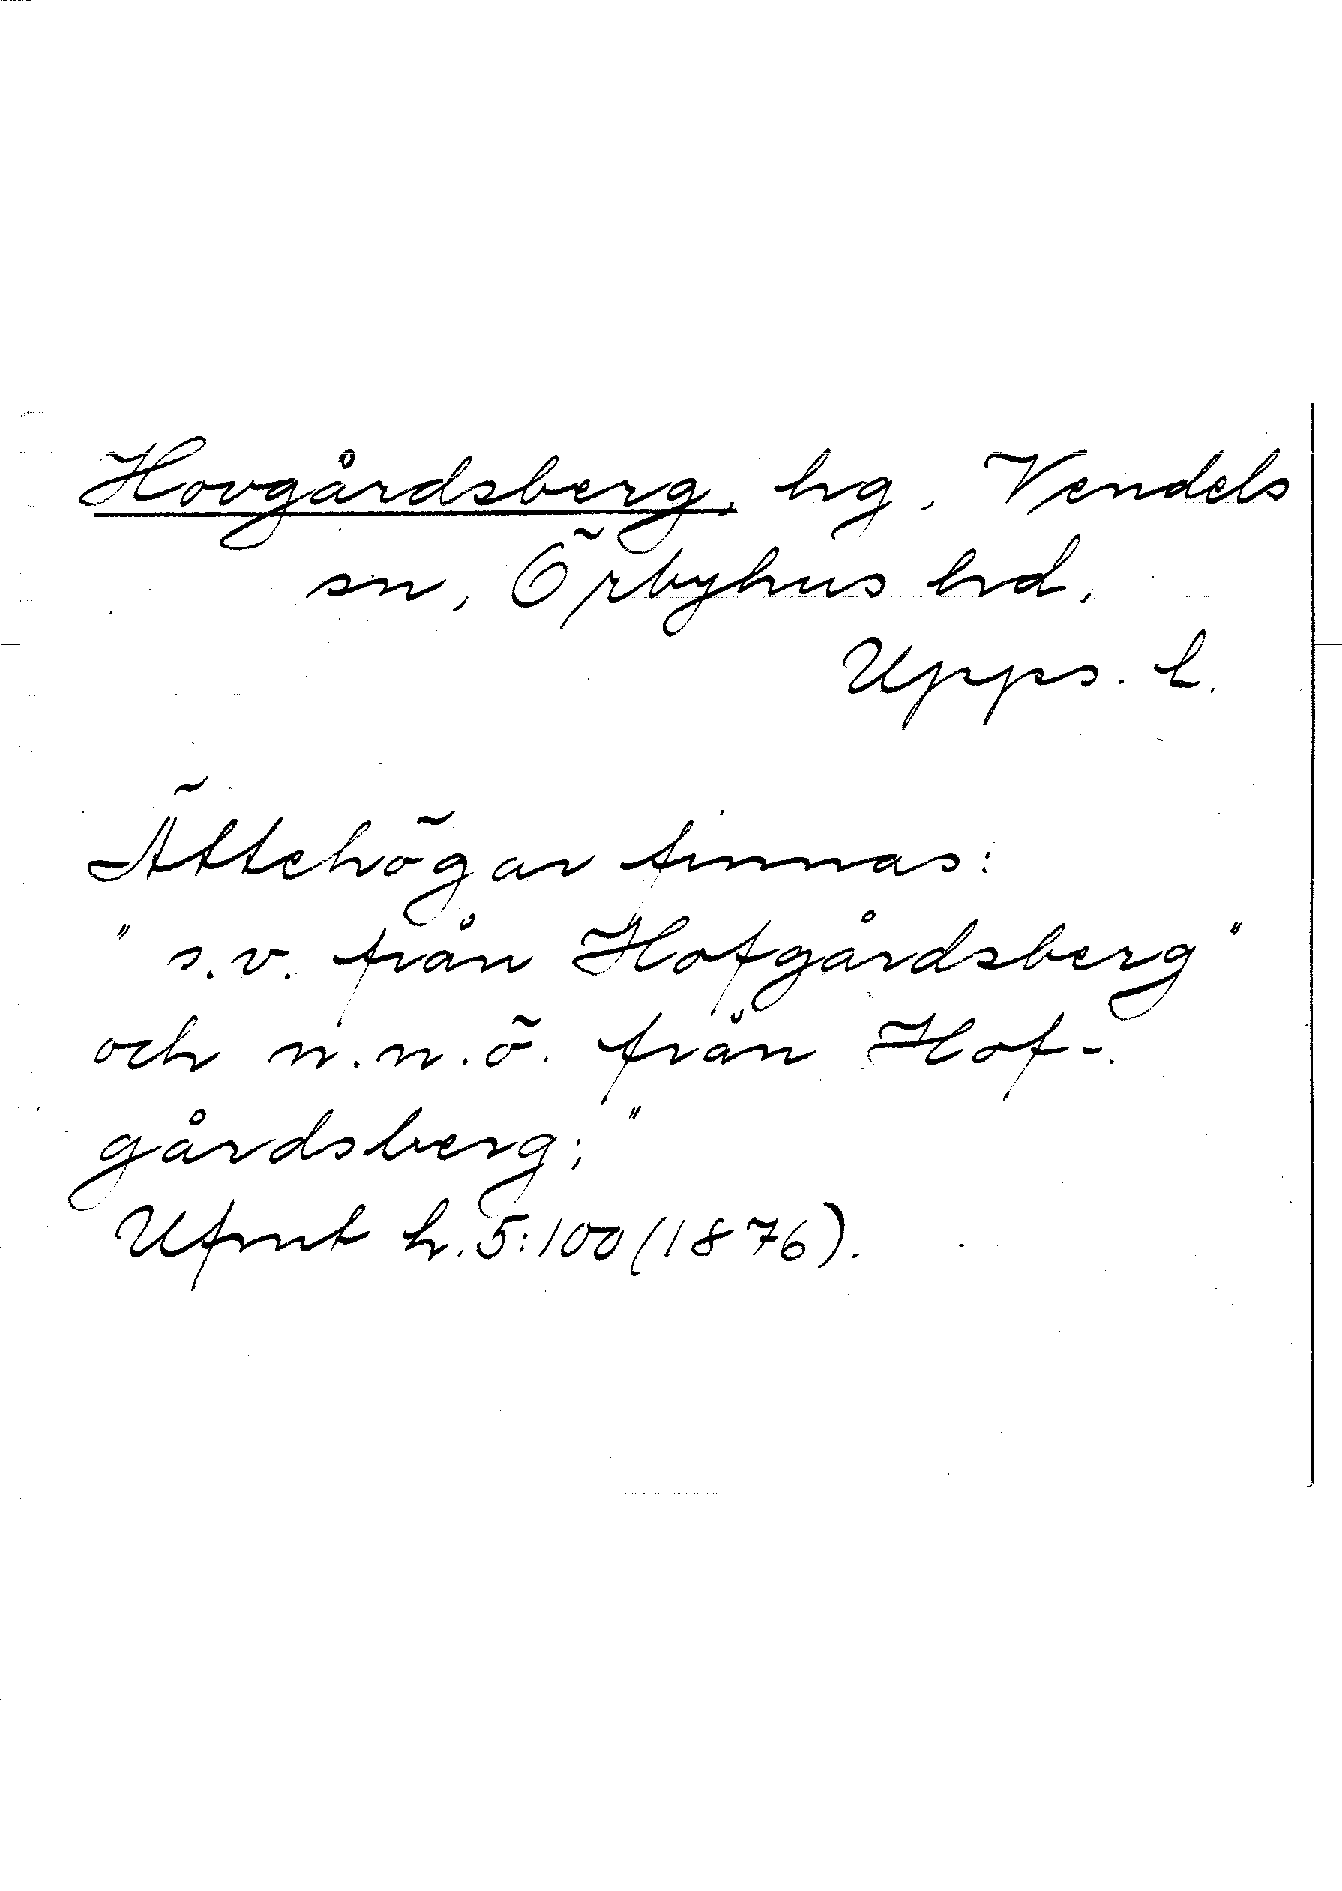 Hovgårdsberg, hg. Vendels
sn, Örbyhus hd,
Upps. l.
Ättehögar finnas:
"s.v. från Hofgårdsberg"
och n.n.ö. från Hof-
gårdsberg;"
Ufmt h. 5:100 (1876).